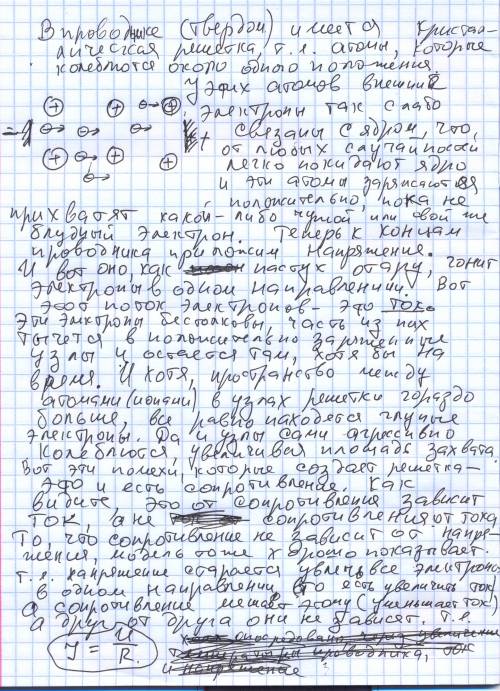 В проводнике (твердом) имеется кристал-
лическая решетка, т.е. атомы, которые
колеблются около одного положения.
У этих атомов внешние
электроны так слабо
связаны с ядром, что,
от любых случайностей
легко покидают ядро
и эти атомы заряжаются
положительно, пока не
прихватят какой-либо чужой или свой же
блудный электрон. Теперь к концам
проводника приложим напряжение.
И вот оно, как пастух отару, гонит
электроны в одном направлении. Вот
этот поток электронов - это ток.
Эти электроны бестолковы, часть из них
тычется в положительно заряженные
узлы и остается там, хотя бы на
время. И хотя, пространство между
атомами (ионами) в узлах решетки гораздо
больше, все равно находятся глупые
электроны. Да и узлы сами агрессивно
колеблются, увеличивая площадь захвата.
Вот эти помехи, которые создает решетка-
это и есть сопротивление. Как
видите, это от сопротивления зависит
ток, а не сопротивления от тока
То, что сопротивление не зависит от напря-
жения, модель тоже хорошо показывает.
т.е. напряжение старается увлечь все электроны
в одном направлении, то есть увеличить ток,
а сопротивление мешает этому (уменьшает ток)
а друг от друга они не зависят. т.е.
J = U/R.